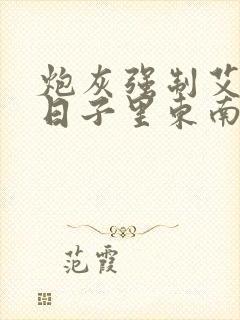 炮灰强制艾
日子里东南
范霞